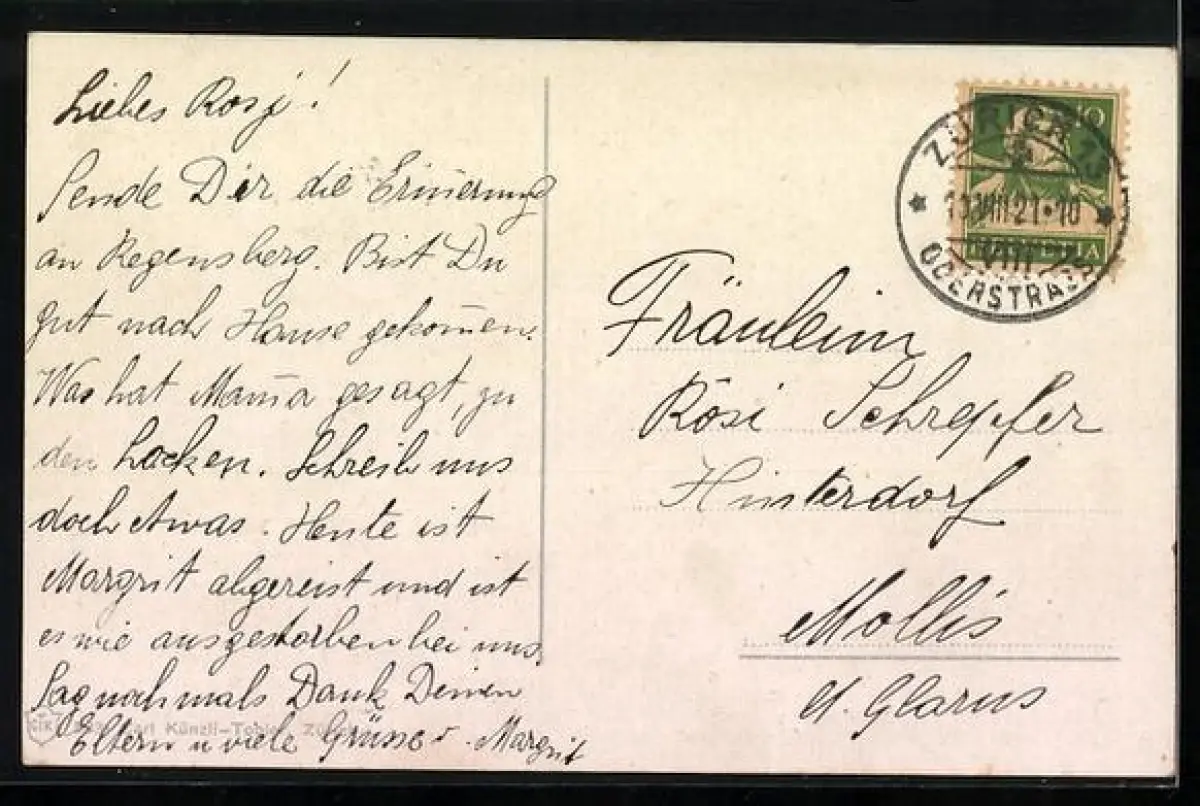 Liebes Rosj!
Sende Dir die Erin̄erung
an Regensberg. Bist Du
gut nach Hause gekom̄en.
Was hat Mam̄a gesagt, zu
den Locken. Schreib uns
doch etwas. Heute ist
Margrit abgereist und ist
es wie ausgestorben bei uns.
Sag nochmals Dank Deinen
Eltern u viele Grüsse v. Margrit
Künzli-Tobler
ZÜRICH
VIII 21·10
VIII
OBERSTRASS
10
HELVETIA
Fräulein
Rösi Schrepfer
Hinterdorf
Mollis
Glarus